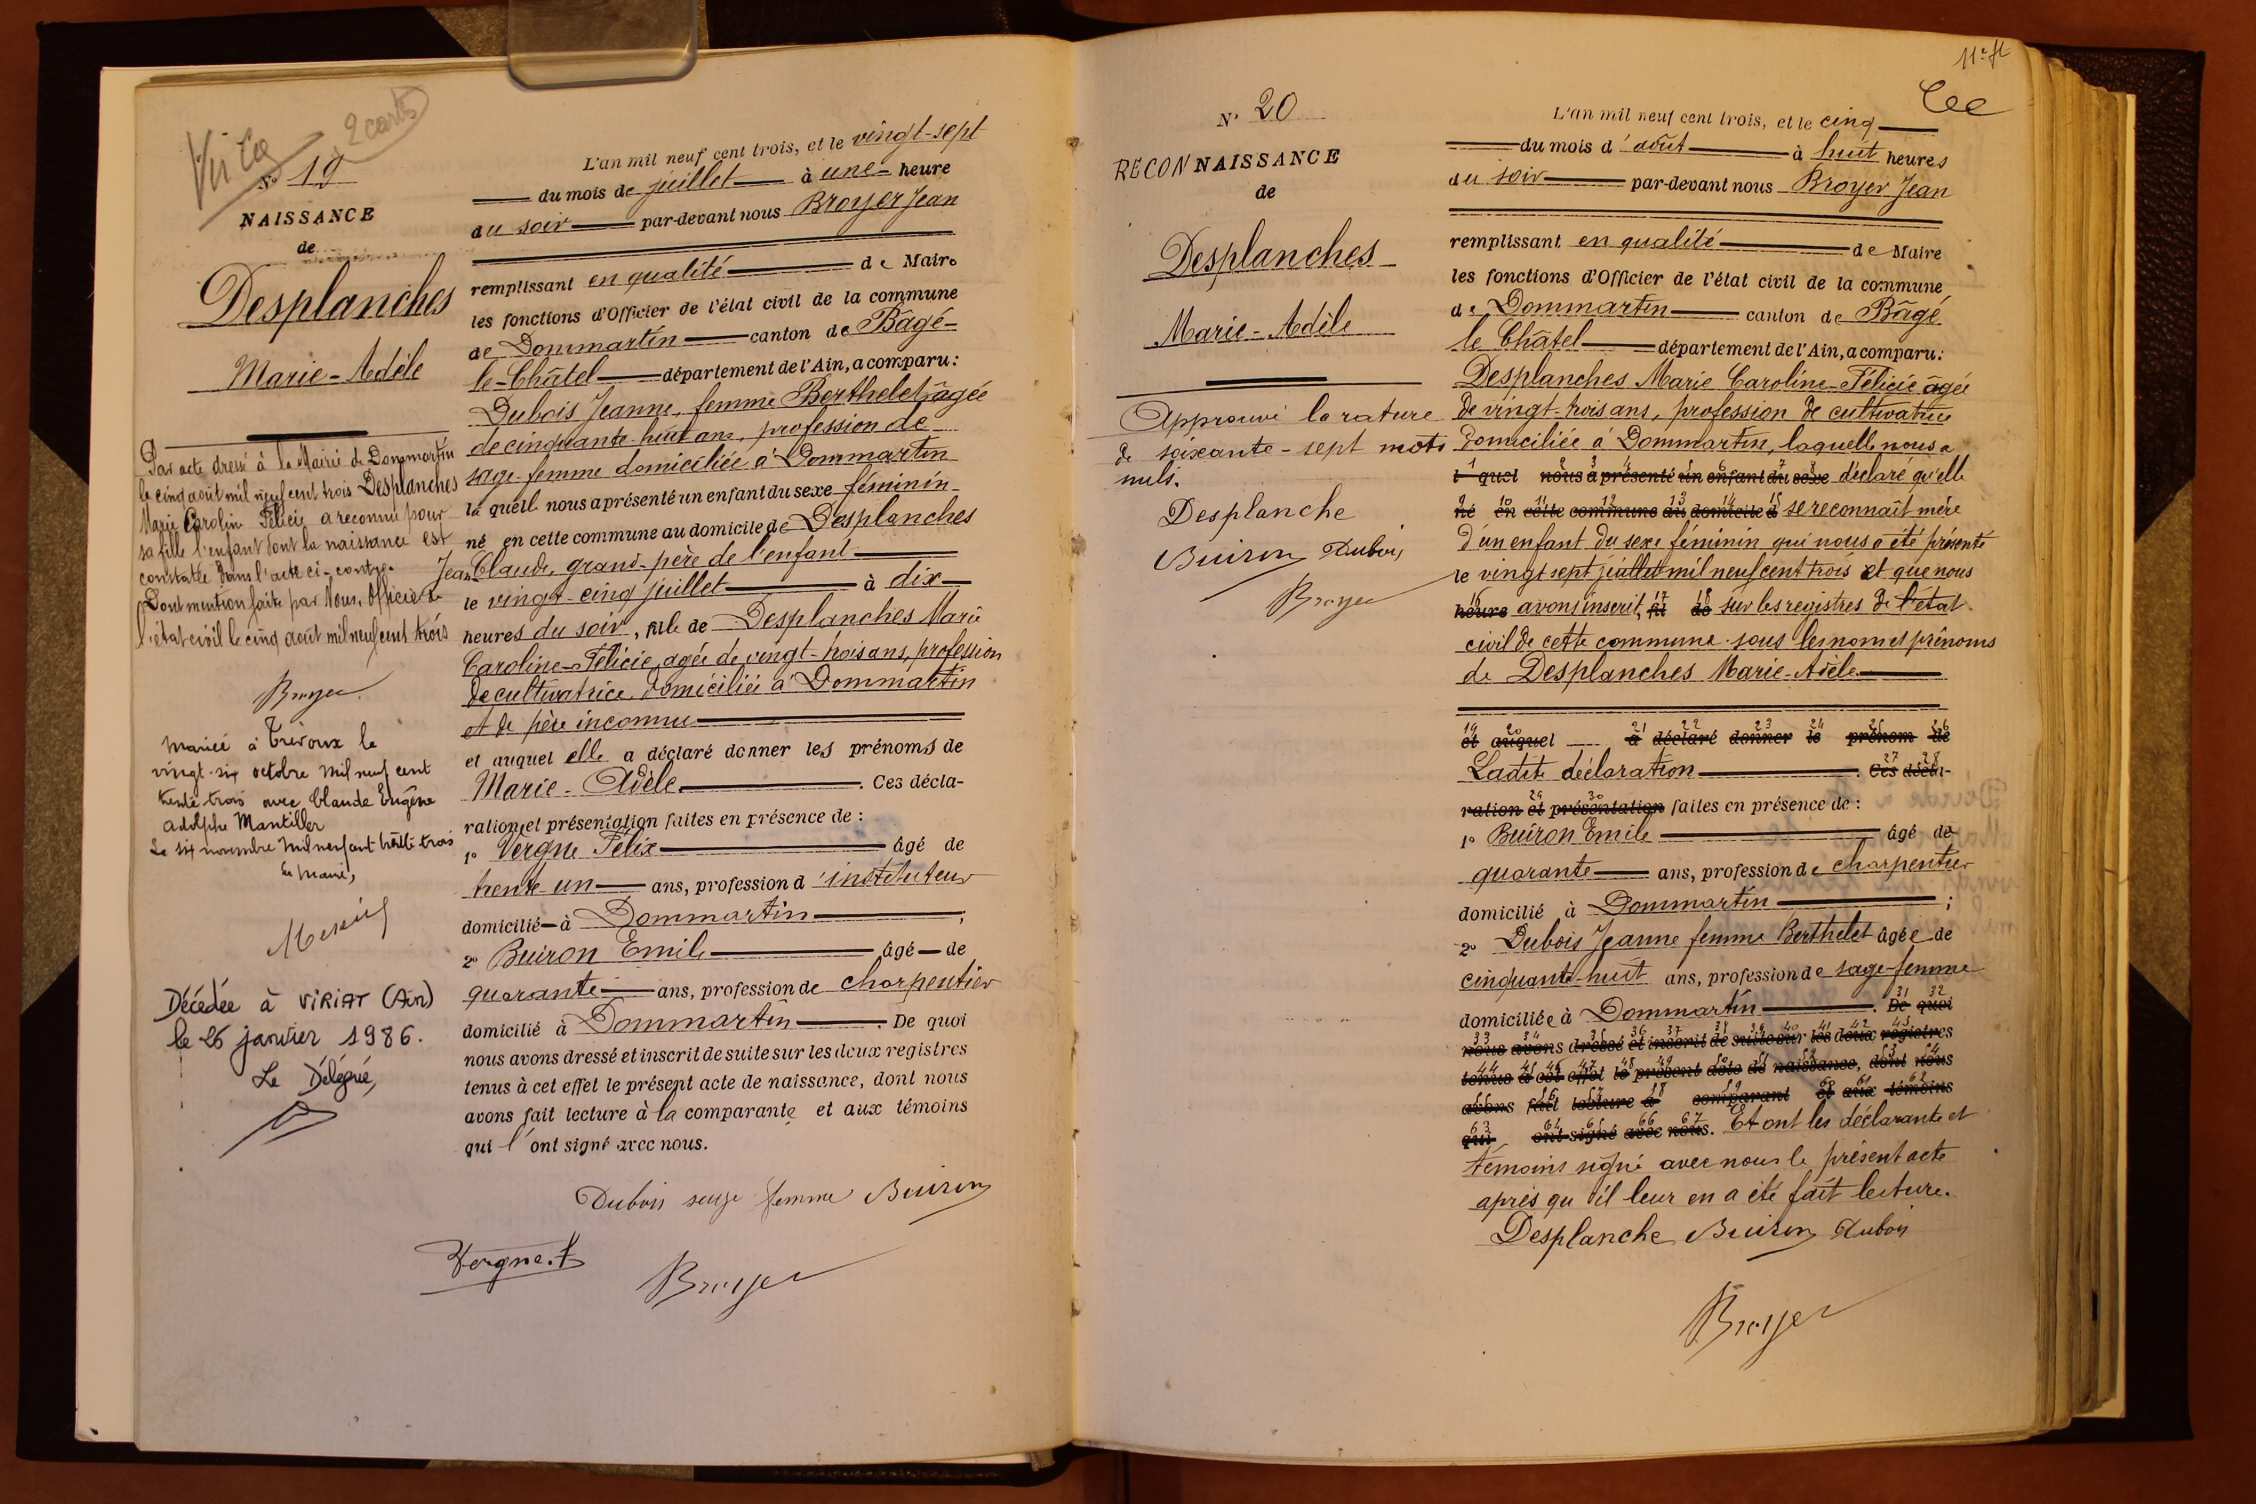 2 carts
N° 19
NAISSANCE
de
Desplanches
Marie-Adèle
Par acte dressé à la Mairie de Dommartin
le cinq août mil neuf cent trois Desplanches
Marie Caroline Félicie a reconnu pour
sa fille l'enfant dont la naissance est
constatée dans l'acte ci-contre.
Dont mention faite par Nous, Officier de
l'état civil le cinq août mil neuf cent trois
Broyer
Mariée à Trévoux le
vingt-six octobre mil neuf cent
trente trois avec Claude Eugène
Adolphe Mantiller
Le six novembre mil neuf cent trente trois
Le Maire,
Décédée à VIRIAT (Ain)
le 26 janvier 1986.
Le Délégué,
L'an mil neuf cent trois, et le vingt-sept
du mois de juillet à une heure
du soir par-devant nous Broyer Jean
remplissant en qualité de Maire
les fonctions d'Officier de l'état civil de la commune
de Dommartin canton de Bâgé-
le-Châtel département de l'Ain, a comparu:
Dubois Jeanne, femme Berthelet âgée
de cinquante-huit ans, profession de
sage-femme domiciliée à Dommartin
laquelle nous a présenté un enfant du sexe féminin
né en cette commune au domicile de Desplanches
Jean-Claude, grand-père de l'enfant
le vingt-cinq juillet à dix
heures du soir, fille de Desplanches Marie
Caroline-Félicie, agée de vingt-trois ans, profession
de cultivatrice domiciliée à Dommartin
et de père inconnu
et auquel elle a déclaré donner les prénoms de
Marie-Adèle. Ces décla-
ration et présentation faites en présence de :
1° Vergne Félix âgé de
trente-un ans, profession d'instituteur
domicilié à Dommartin ;
2° Buiron Emile âgé de
quarante ans, profession de charpentier
domicilié à Dommartin. De quoi
nous avons dressé et inscrit de suite sur les deux registres
tenus à cet effet le présent acte de naissance, dont nous
avons fait lecture à la comparante et aux témoins
qui l'ont signé avec nous.
Dubois sage femme Buiron
Vergne.f
Broyer
11e ft
N° 20
RECONNAISSANCE
de
Desplanches
Marie-Adèle
Approuvé la rature
de soixante-sept mots
nuls.
Desplanche
Buiron Dubois
Broyer
L'an mil neuf cent trois, et le cinq
du mois d'août à huit heures
du soir par-devant nous Broyer Jean
remplissant en qualité de Maire
les fonctions d'Officier de l'état civil de la commune
de Dommartin canton de Bâgé
le Châtel département de l'Ain, a comparu:
Desplanches Marie Caroline-Félicie âgée
de vingt-trois ans, profession de cultivatrice
domiciliée à Dommartin, laquelle nous a
l quel nous a présenté un enfant du sexe déclaré qu'elle
né en cette commune au domicile d se reconnaît mère
d'un enfant du sexe féminin qui nous a été présenté
le vingt sept juillet mil neuf cent trois et que nous
heure avons inscrit, fil de sur les registres de l'état
civil de cette commune sous les nom et prénoms
de Desplanches Marie-Adèle
et auquel a déclaré donner le prénom de
Ladite déclaration. Ces décla-
ration et présentation faites en présence de :
1° Buiron Emile âgé de
quarante ans, profession de charpentier
domicilié à Dommartin ;
2° Dubois Jeanne femme Berthelet âgée de
cinquante-huit ans, profession de sage-femme
domiciliée à Dommartin. De quoi
nous avons dressé et inscrit de suite sur les deux registres
tenus à cet effet le présent acte de naissance, dont nous
avons fait lecture à comparant et aux témoins
qui ont signé avec nous. Et ont les déclarante et
témoins signé avec nous le présent acte
après qu'il leur en a été fait lecture.
Desplanche Buiron Dubois
Broyer